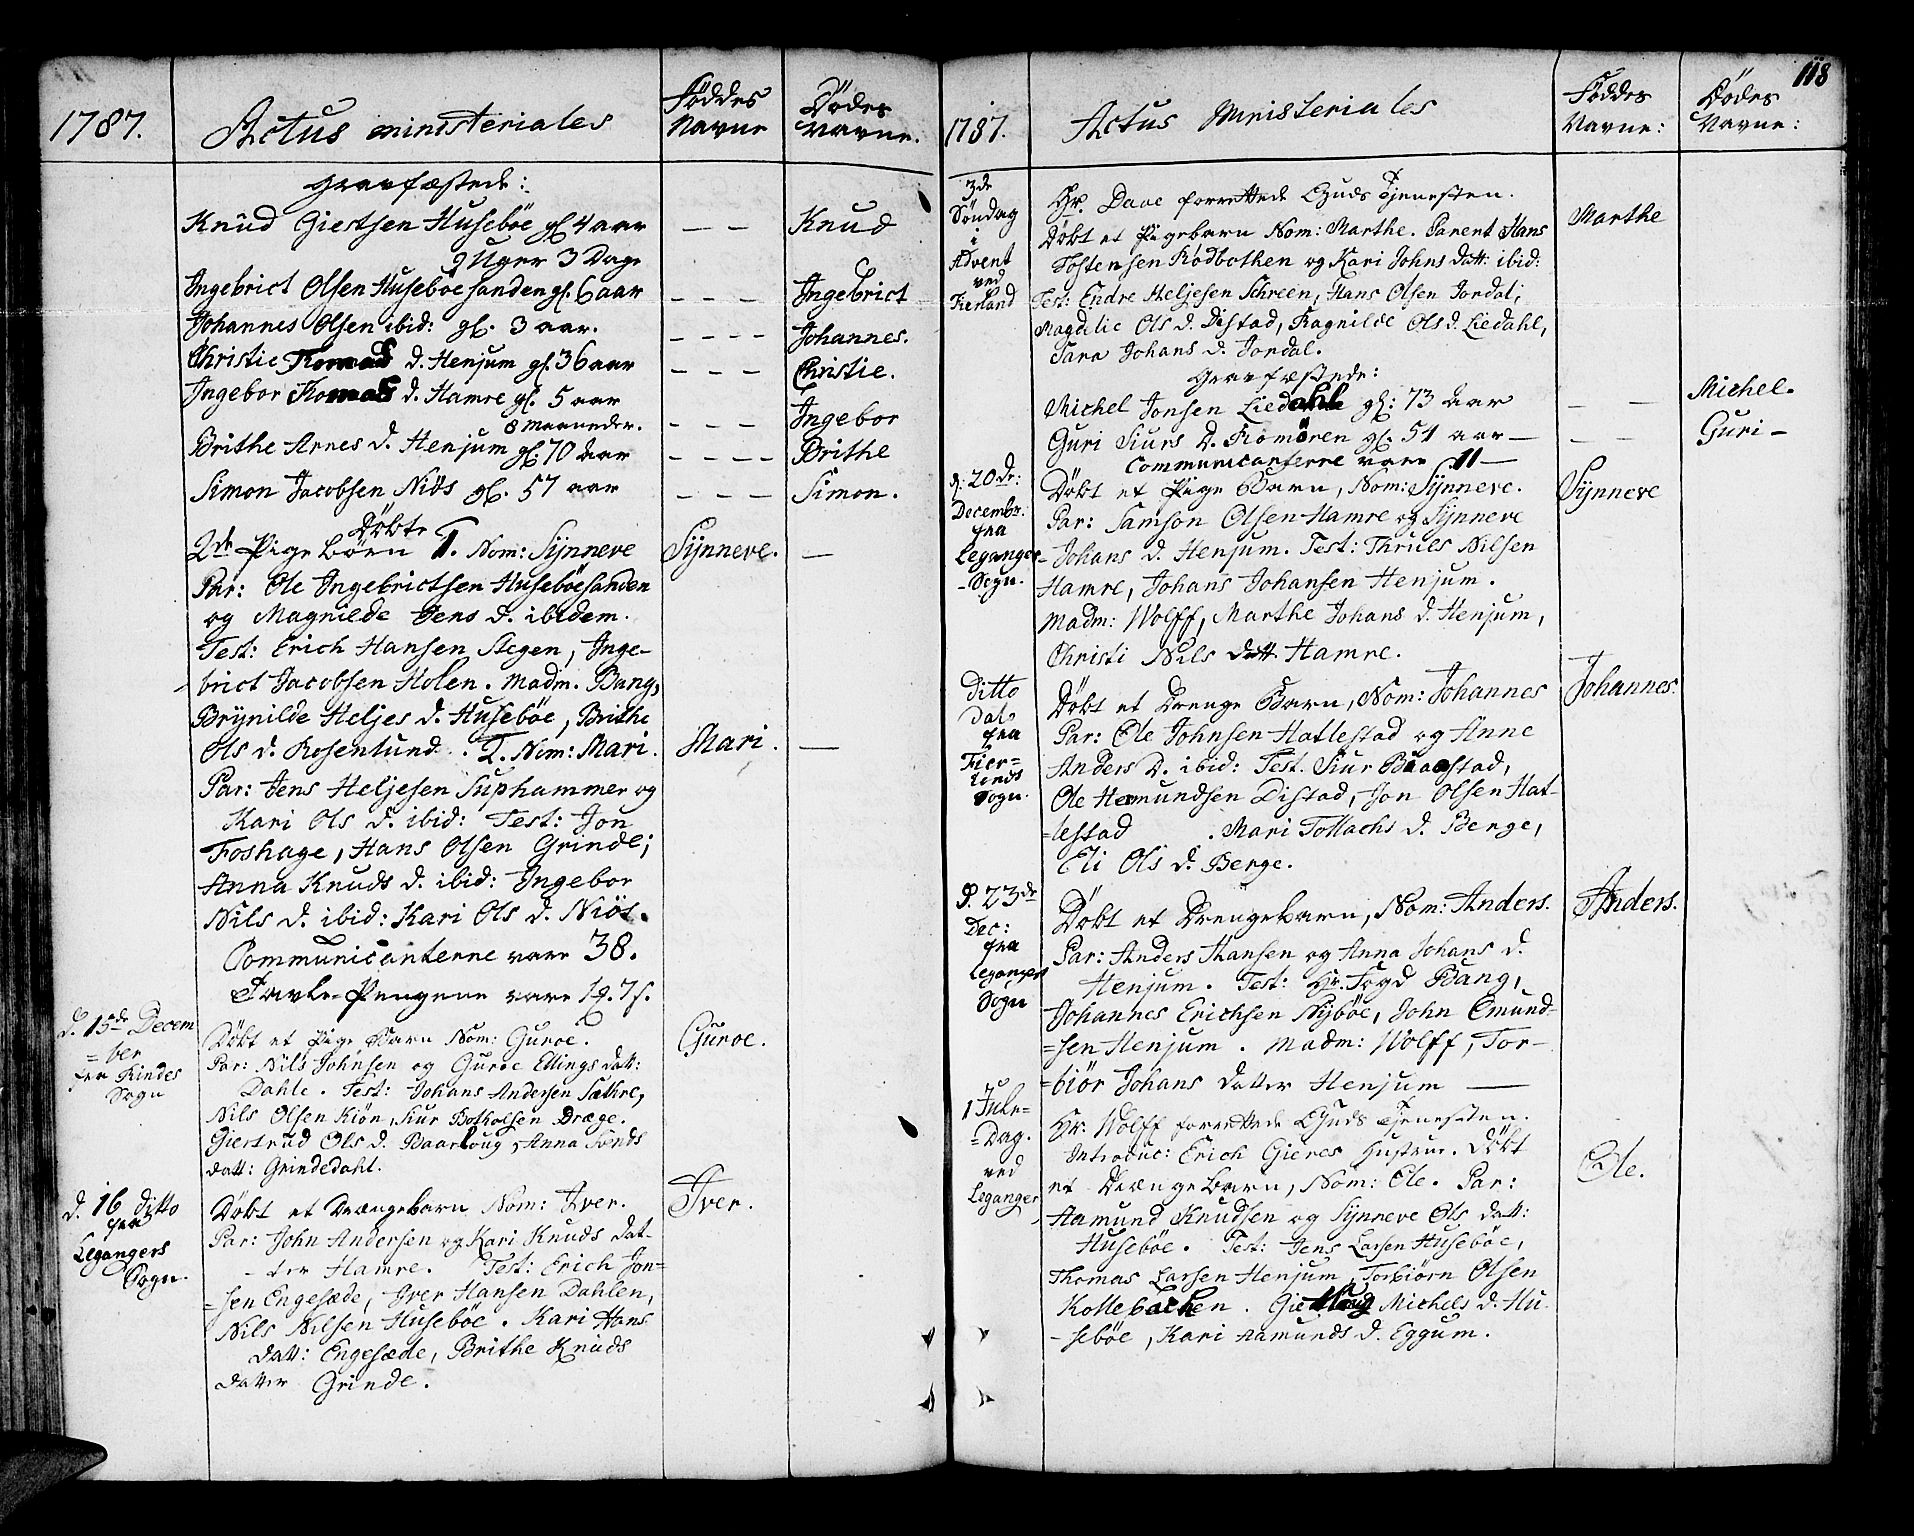 1787.
Actus ministeriales
Föddes
Navne
Dödes
Navne.
Gravfæstede:
Knud Giertsen Huseböe gl 4 aar
9 Uger 3 Dage
— —
Knud
Ingebrict Olsen Huseböesanden gl. 6 aar
— — —
Ingebrict
Johannes Olsen ibid: gl. 3 aar.
— — — —
Johannes.
Christie Tomas d. Henjum gl. 36 aar
— — —
Christie.
Ingebor Tomas d. Hamre gl. 5 aar
8 Maaneder.
— — —
Ingebor
Brithe Arnes d. Henjum gl. 70 aar
— — — —
Brithe
Simon Jacobsen Niös gl. 57 aar
— — —
Simon.
Döbte
2de Pigebörn 1. Nom: Synneve
Synneve. —
Par: Ole Ingebrictsen Huseböesanden
og Magnilde Jens d. ibidem.
Test: Erich Hansen Stegen, Inge-
brict Jacobsen Holen. Madm. Bang,
Brynilde Heljes d. Huseböe, Brithe
Ols d. Rosenlund. 2. Nom: Mari.
Mari. —
Par: Jens Heljesen Suphammer og
Kari Ols d. ibid: Test: Jon
Foshage, Hans Olsen Grinde;
Anna Knuds d. ibid: Ingebor
Nils d. ibid: Kari Ols d. Niös.
Communicanterne vare 38.
Tavle-Pengene vare 1 7 s.
d. 15de Decem
=ber
fra Rindes
Sogn
Döbt et Pige Barn Nom: Guroe.
Guroe.
Par: Nils Johnsen og Guroe Ellings datt:
Dahle. Test: Johans Andersen Sathre,
Nils Olsen Kiön, Siur Botholsen Dræge.
Giertrud Ols d. Baardoug, Anna Sonds
datt: Grindedahl.
d. 16 ditto
fra
Legangers
Sogn.
Döbt et Drængebarn Nom: Iver.
Iver.
Par: John Andersen og Kari Knuds dat-
-ter Hamre. Test: Erich Jon=
=sen Engesæde, Iver Hansen Dahlen,
Nils Nilsen Huseböe. Kari Hans
datt: Engesæde, Brithe Knuds
datter Grinde.
118
1787.
Actus Ministeriales
Föddes
Navne:
Dödes
Navne:
3de
Söndag
i
Advent
ved
Fierland
Hr. Daae forrettede Guds Tjenesten.
Döbt et Pigebarn Nom: Marthe. Parent Hans
Marthe
Tostensen Rödbotten og Kari Johns datt: ibid:
Test: Endre Heljesen Skreen, Hans Olsen Jordal,
Magdelie Ols d. Distad, Ragnilde Ols d. Liedahl,
Sara Johans d. Jordal.
Gravfæstede:
Michel Jonsen Liedahl gl: 73 aar
— —
Michel.
Guri Siurs d. Romören gl. 54 aar —
— —
Guri —
Communicanterne vare 11 —
d: 20de:
Decembr:
fra
Leganger
-Sogn.
Döbt et Pige Barn, Nom: Synneve.
Synneve
Par: Samson Olsen Hamre og Synneve
Johans d. Henjum. Test: Thruls Nilsen
Hamre, Johans Johansen Henjum.
Madm: Wolff, Marthe Johans d. Henjum,
Christi Nils datt. Hamre.
Ditto
Dat.
fra
Fier=
lends
Sogn.
Döbt et Drenge Barn, Nom: Johannes
Johannes.
Par: Ole Johnsen Hatlestad og Anne
Anders d. ibid: Test. Siur Baastad,
Ole Hermundsen Distad, Jon Olsen Hat-
=lestad. Mari Tollachs d. Berge,
Eli Ols d. Berge.
d. 23de
Dec:
fra
Legangers
Sogn
Döbt et Drengebarn, Nom: Anders.
Anders.
Par: Anders Hansen og Anna Johans d.
Henjum. Test: Hr. Fogd Bang,
Johannes Erichsen Nyböe, John Emund-
=sen Henjum. Madm: Wolff, Tor-
=biör Johans datter Henjum —
1 Jule=
=Dag.
ved
Leganger
Hr. Wolff forrettede Guds Tjenesten.
Introduc: Erich Gieres Hustrue. Döbt
et Drængebarn, Nom: Ole. Par:
Ole.
Aamund Knudsen og Synneve Ols datt:
Huseböe. Test: Jens Larsen Huseböe,
Thomas Larsen Henjum, Torbiörn Olsen
Kollebacken. Michels d. Hu-
-seböe, Kari Aamunds d. Eggum.